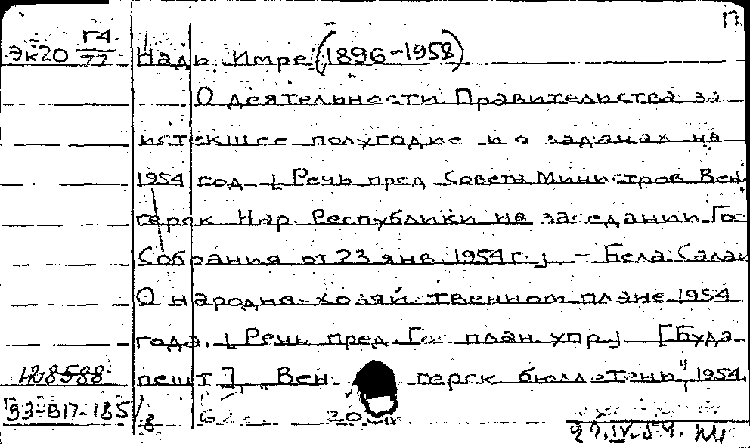 П
Эк20 Г4/77 Надь Имре (1896-1958)
О деятельности Правительства за
истекшее полугодие и о задачах на
1954 год [Речь пред. Совета Министров Вен
герск Нар. Республики на заседании Гос
Собрания от 23 янв. 1954 г.] – Бела Салаи
О народно-хозяйственном плане 1954
года. [Речь пред. Гос план. упр.] [Буда
пешт], "Венгерск бюллетень", 1954.
128588
93-В17-185/8
20